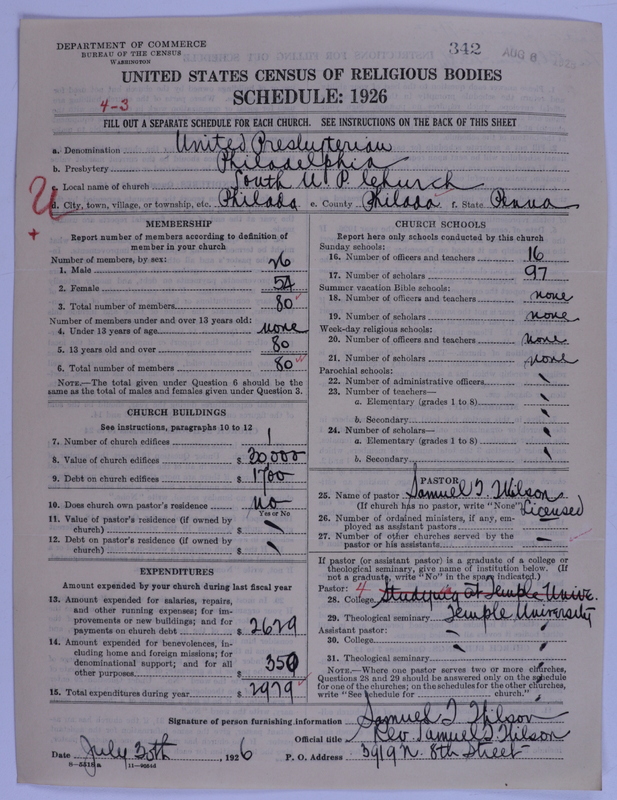 342
DEPARTMENT OF COMMERCE
BUREAU OF THE CENSUS
WASHINGTON
UNITED STATES CENSUS OF RELIGIOUS BODIES
SCHEDULE: 1926
4-3
FILL OUT A SEPARATE SCHEDULE FOR EACH CHURCH. SEE INSTRUCTIONS ON THE BACK OF THIS SHEET
a. Denomination United Presbyterian
b. Presbytery Philadelphia
c. Local name of church South U.P. Church
d. City, town, village, or township, etc. Philada e. County Philada. f. State Penna
MEMBERSHIP
Report number of members according to definition of member in your church
Number of members, by sex:
1. Male 26
2. Female 54
3. Total number of members 80
Number of members under and over 13 years old:
4. Under 13 years of age none
5. 13 years old and over 80
6. Total number of members 80
NOTE.—The total given under Question 6 should be
same as the total of males and females given under Question 3.
CHURCH BUILDINGS
See instructions, paragraphs 10 to 12
7. Number of church edifices 1
8. Value of church edifices $ 30,000
9. Debt on church edifices $ 1700
10. Does church own pastor's residence No
Yes or No
11. Value of pastor's residence (if owned by
church) $
12. Debt on pastor's residence (if owned by
church) $
EXPENDITURES
Amount expended by your church during last fiscal year
13. Amount expended for salaries, repairs,
and other running expenses; for im-
provements or new buildings; and for
payments on church debt $ 2629
14. Amount expended for benevolences, in-
cluding home and foreign missions; for
denominational support; and for all
other purposes $ 350
15. Total expenditures during year $ 2979
CHURCH SCHOOLS
Report here only schools conducted by this church
Sunday schools:
16. Number of officers and teachers 16
17. Number of scholars 97
Summer vacation Bible schools:
18. Number of officers and teachers none
19. Number of scholars none
Week-day religious schools:
20. Number of officers and teachers none
21. Number of scholars none
Parochial schools:
22. Number of administrative officers
23. Number of teachers—
a. Elementary (grades 1 to 8)
b. Secondary
24. Number of scholars—
a. Elementary (grades 1 to 8)
b. Secondary
PASTOR
25. Name of pastor Samuel T. Wilson
(If church has no pastor, write "None") Licensed
26. Number of ordained ministers, if any, em-
ployed as assistant pastors
27. Number of other churches served by the
pastor or his assistants
If pastor (or assistant pastor) is a graduate of a college or
theological seminary, give name of institution below. (If
not a graduate, write "No" in the space indicated.)
Pastor: 4
28. College Studying at Temple Unive.
29. Theological seminary Temple University
Assistant pastor:
30. College
31. Theological seminary
NOTE.—Where one pastor serves two or more churches,
Questions 28 and 29 should be answered only on the schedule
for one of the churches; on the schedules for the other churches,
write "See schedule for church."
Signature of person furnishing information Samuel T Wilson
Official title Rev. Samuel T Wilson
Date July 30th, 1926 P. O. Address 5919 N. 8th Street